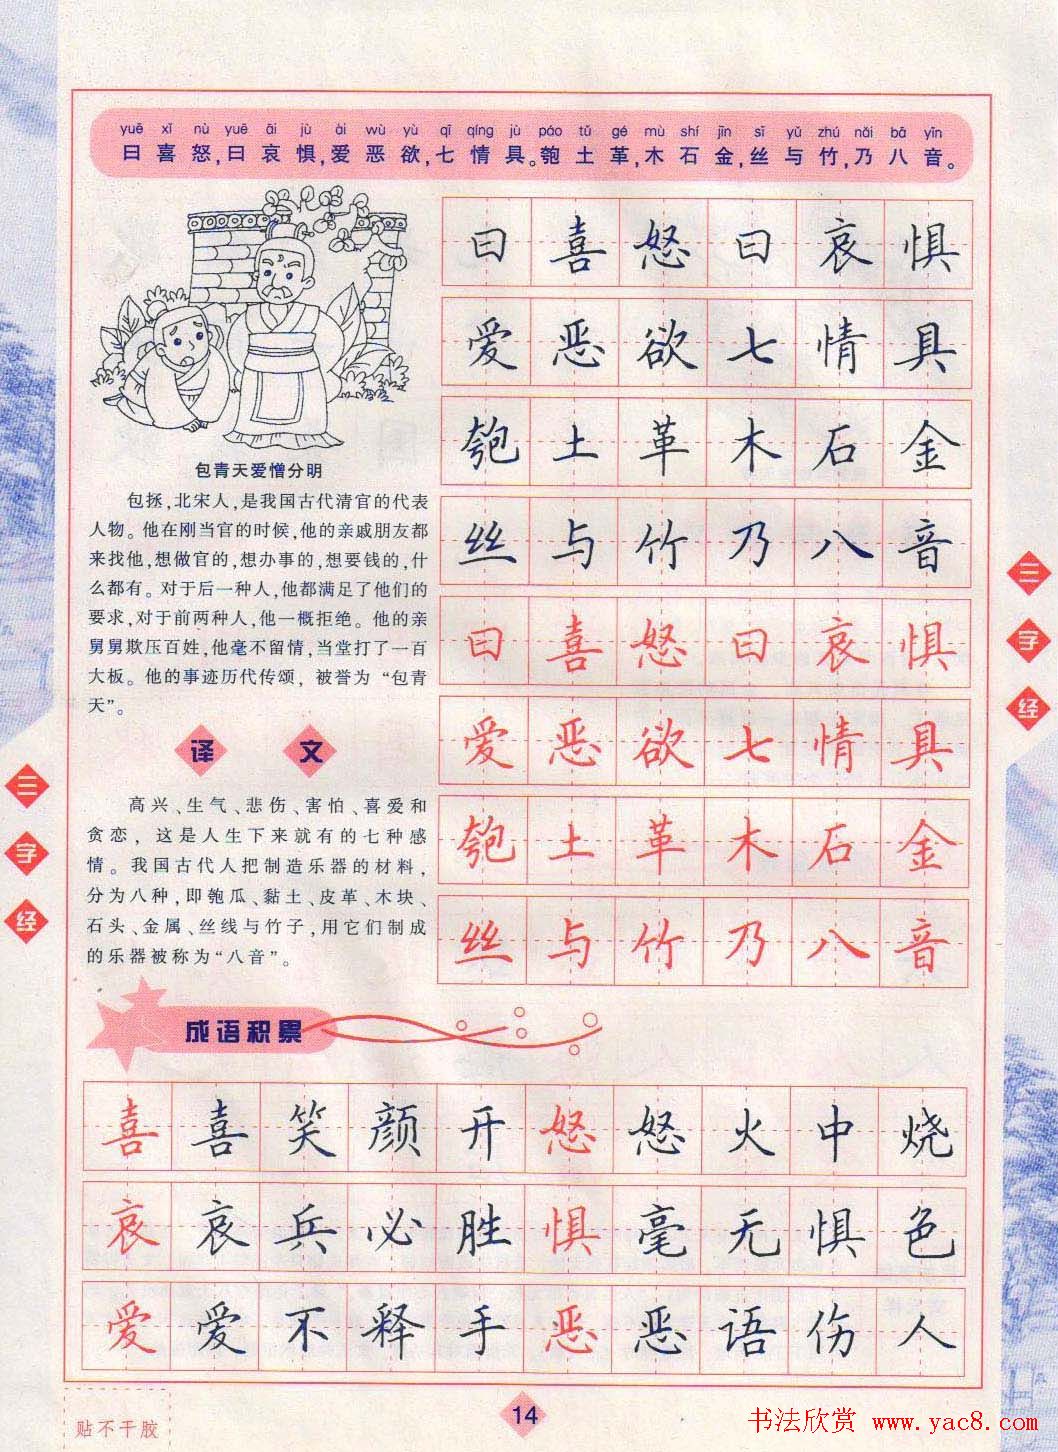 yuē xǐ nù yuē āi jù ài wù yù qī qíng jù páo tǔ gé mù shí jīn sī yǔ zhú nǎi bā yīn
曰喜怒,曰哀惧,爱恶欲,七情具。匏土革,木石金,丝与竹,乃八音。
包青天爱憎分明
包拯,北宋人,是我国古代清官的代表
人物。他在刚当官的时候,他的亲戚朋友都
来找他,想做官的,想办事的,想要钱的,什
么都有。对于后一种人,他都满足了他们的
要求,对于前两种人,他一概拒绝。他的亲
舅舅欺压百姓,他毫不留情,当堂打了一百
大板。他的事迹历代传颂,被誉为“包青
天”。
译文
高兴、生气、悲伤、害怕、喜爱和
贪恋,这是人生下来就有的七种感
情。我国古代人把制造乐器的材料,
分为八种,即匏瓜、黏土、皮革、木块、
石头、金属、丝线与竹子,用它们制成
的乐器被称为“八音”。
曰喜怒曰哀惧
爱恶欲七情具
匏土革木石金
丝与竹乃八音
曰喜怒曰哀惧
爱恶欲七情具
匏土革木石金
丝与竹乃八音
三字经
三字经
成语积累
喜喜笑颜开怒怒火中烧
哀哀兵必胜惧毫无惧色
爱爱不释手恶恶语伤人
贴不干胶
14
书法欣赏 www.yac8.com